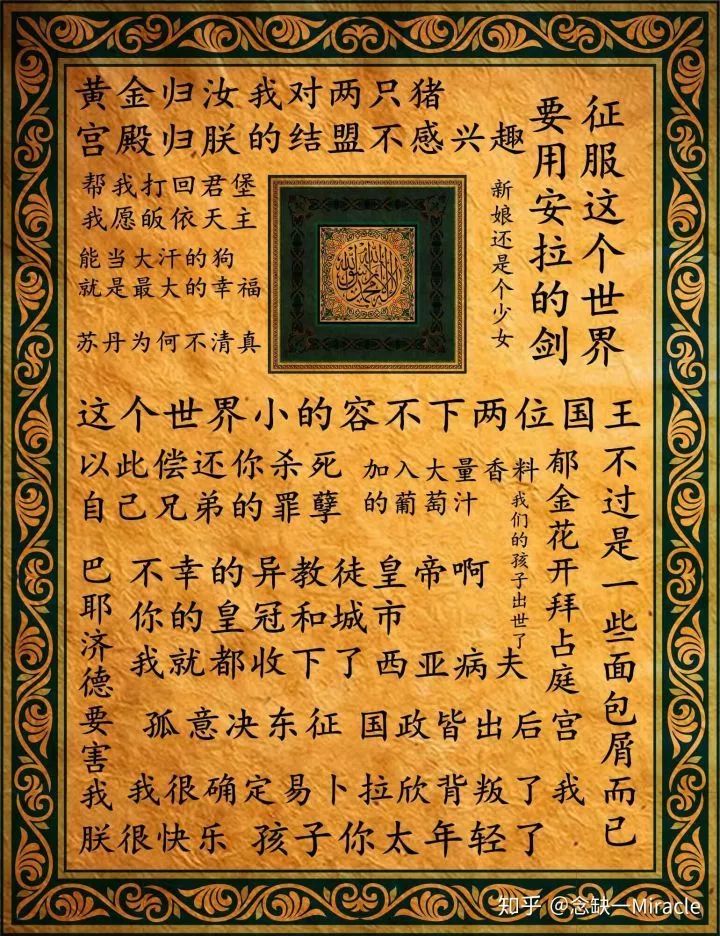 黄金归汝我对两只猪
宫殿归朕的结盟不感兴趣
征服这个世界
要用安拉的剑
帮我打回君堡
我愿皈依天主
能当大汗的狗
就是最大的幸福
苏丹为何不清真
لا إله إلا الله محمد رسول الله
新娘还是个少女
这个世界小的容不下两位国王
以此偿还你杀死
自己兄弟的罪孽
加入大量香料
的葡萄汁
我们的孩子出世了
郁金花开拜占庭
不过是一些面包屑而已
巴耶济德要害我
不幸的异教徒皇帝啊
你的皇冠和城市
我就都收下了 西亚病夫
孤意决东征 国政皆出后宫
我很确定易卜拉欣背叛了我
朕很快乐 孩子你太年轻了
知乎 @念缺一Miracle